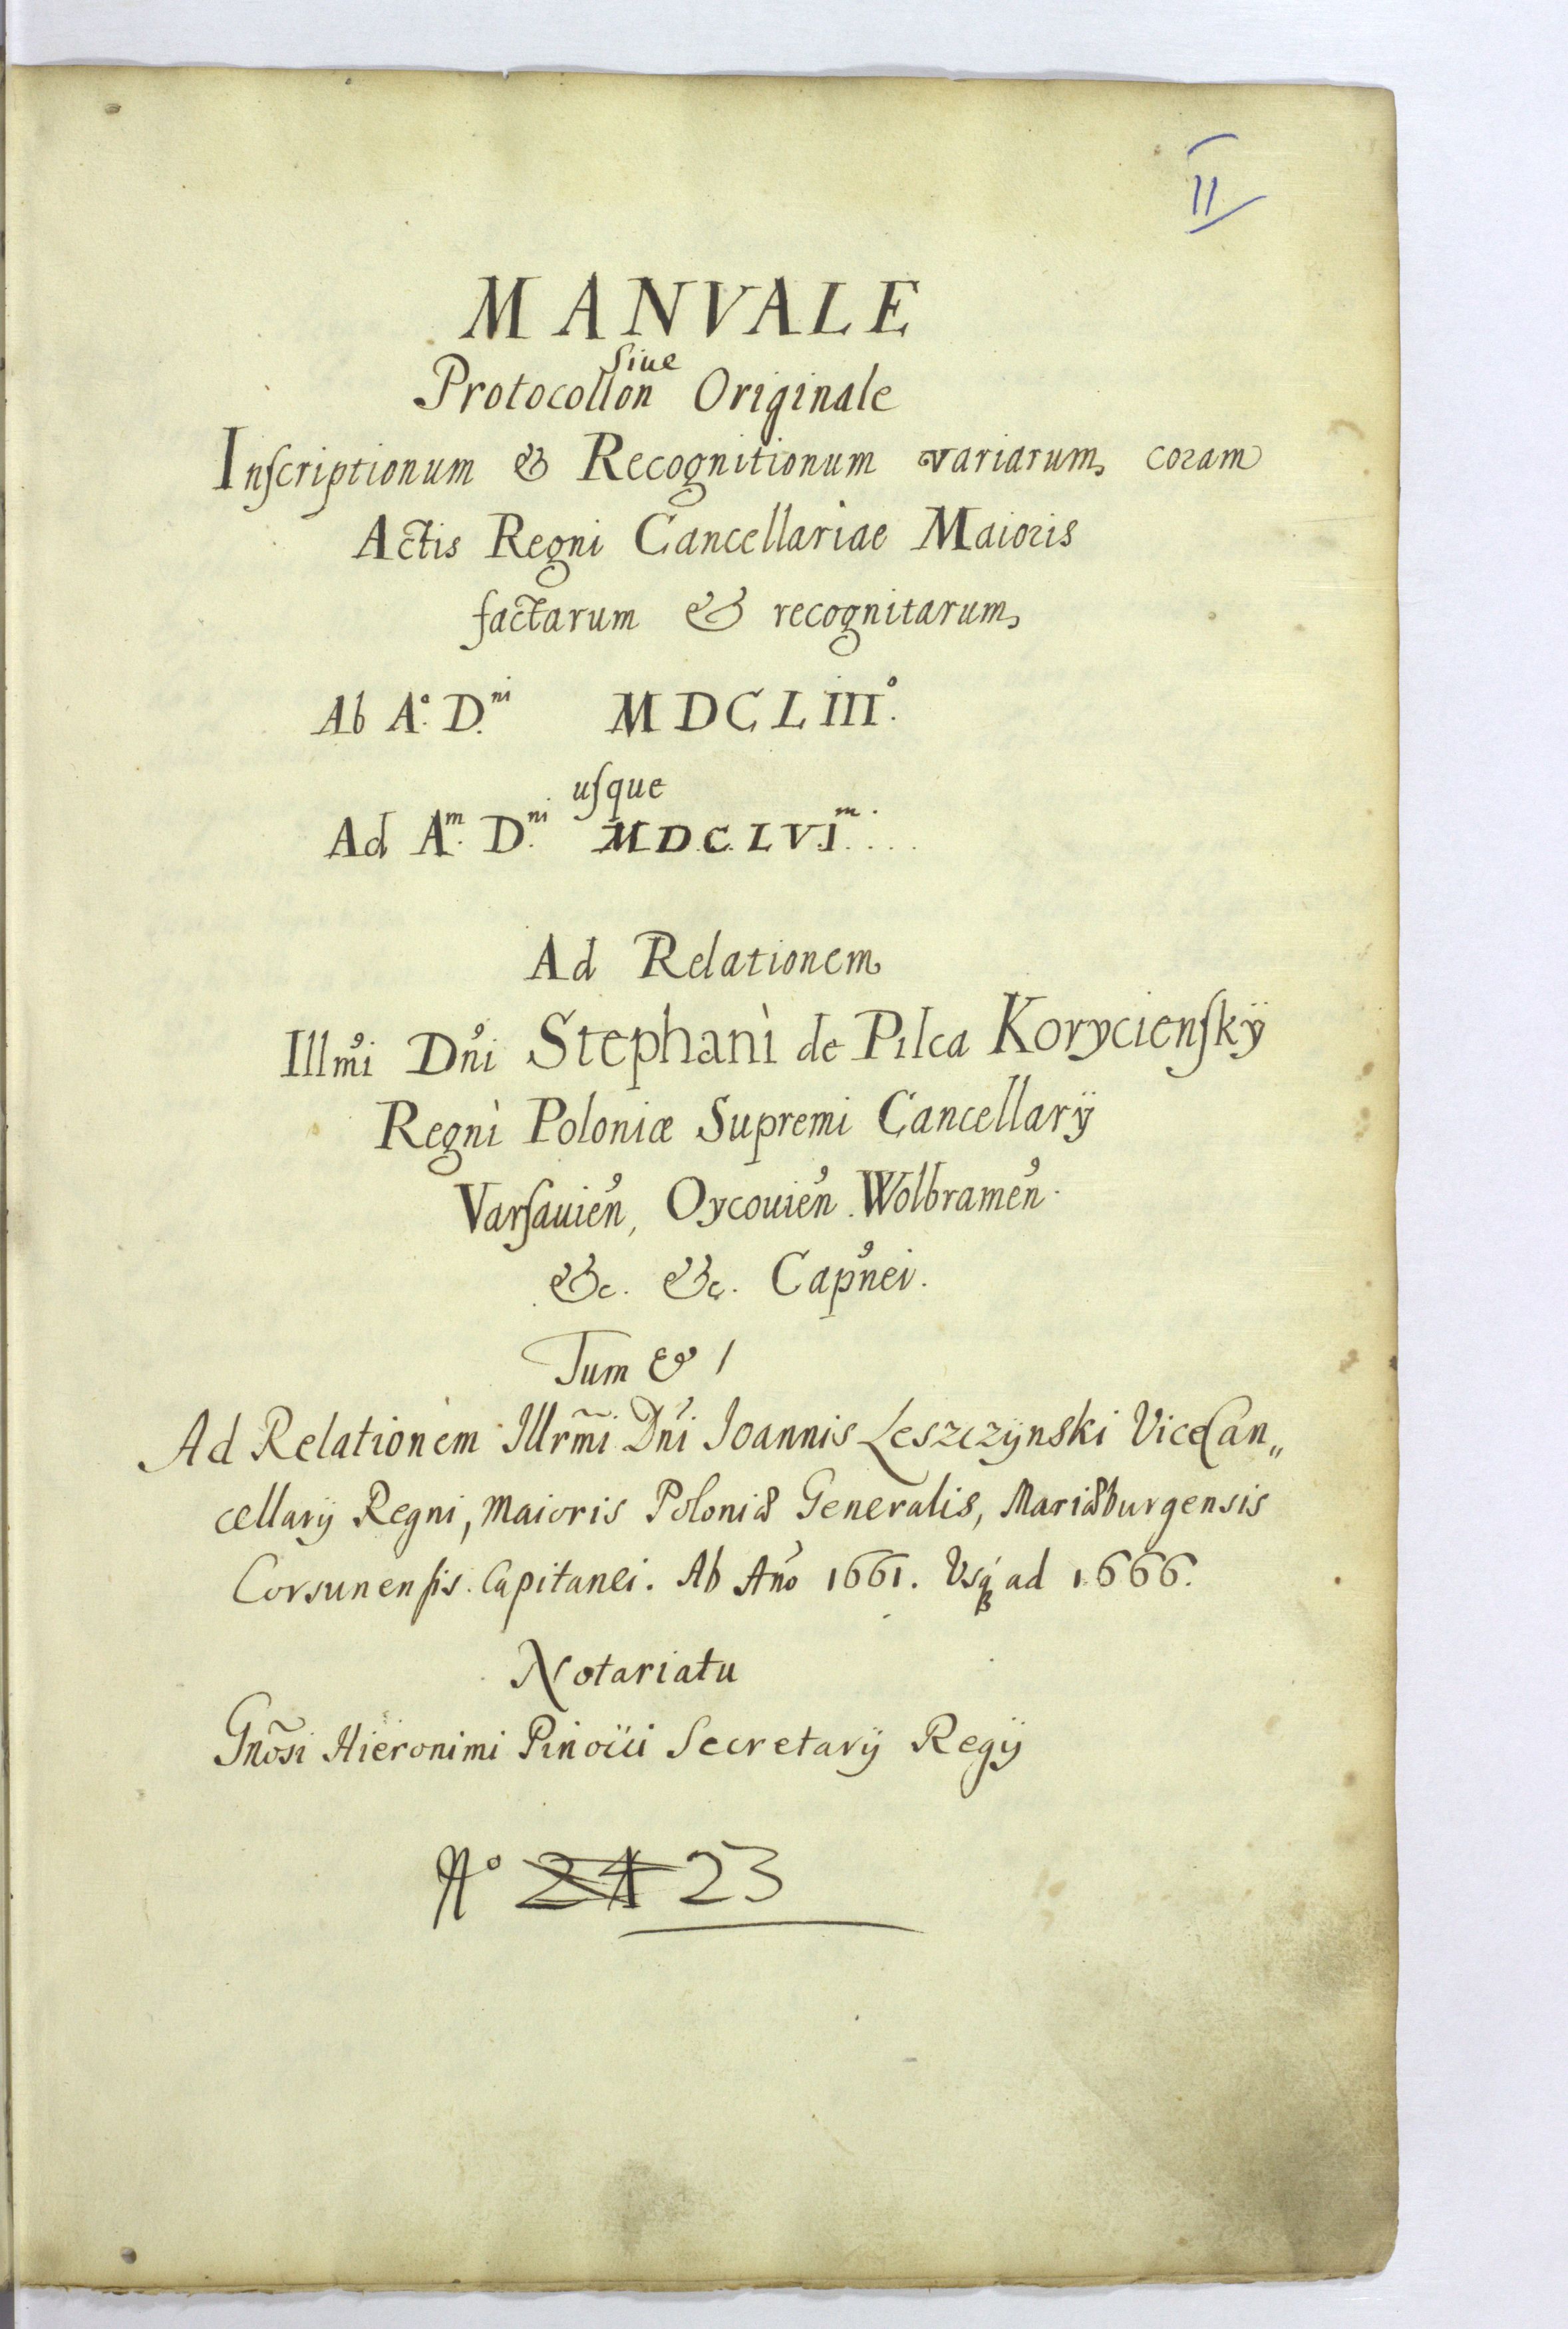 II
MANVALE
Siue
Protocollon Originale
Inſcriptionum & Recognitionum variarum coram
Actis Regni Cancellariae Maioris
factarum & recognitarum
Ab A.º D.ⁿⁱ MDCLIII.º
uſque
Ad A.ᵐ D.ⁿⁱ M.D.C.LVI.ᵐ....
Ad Relationem
Illm̉i Dn̉i Stephanì de Pilca Korycienſkÿ
Regnì Poloniæ Supremi Cancellarÿ
Varſauien̉, Oycouien̉. Wolbramen̉.
&c. &c. Cap̉nei.
Tum &
Ad Relationem Illrm̃i Dn̉i Joannis Leszczÿnski ViceCan„
cellarÿ Regni, Maioris Poloniæ Generalis, Mariæburgensis
Corsunenſis. Capitanei. Ab An̉o 1661. Vsq́ ad 1666.
Notariatu
Gnõsi Hieronimi Pinocii Secretarÿ Regÿ
Nº 21 23